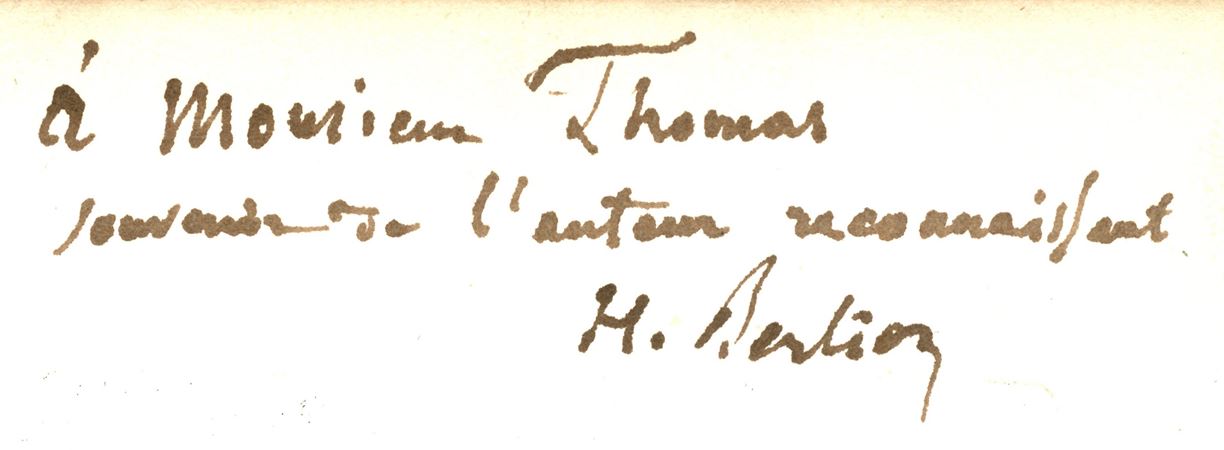 à Monsieur Thomas
souvenir de l'auteur reconnaissant
H. Berlioz